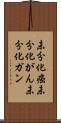 未分化癌未
分化がん未
分化ガン